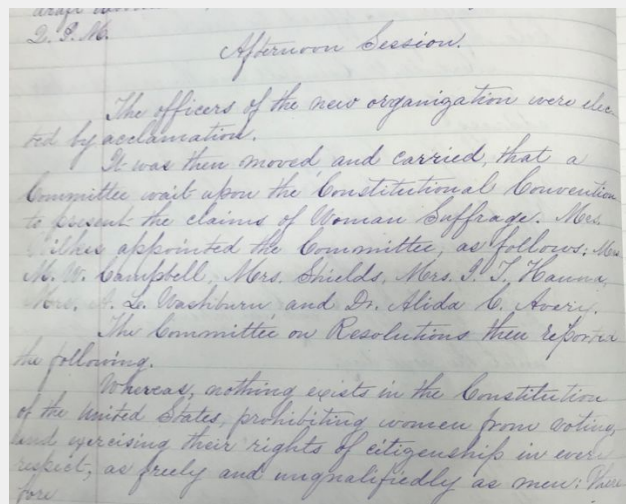 2. P.M.
Afternoon Session.
The officers of the new organization were elec-
ted by acclamation.
It was then moved and carried, that a
Committee wait upon the Constitutional Convention
to present the claims of Woman Suffrage. Mrs.
appointed the Committee, as follows: Mrs
M. W. Campbell, Mrs. Shields, Mrs. I. T. Hanna,
Mrs. A. L. Washburn and Dr. Alida C. Avery.
The Committee on Resolutions then reported
the following.
Whereas, nothing exists in the Constitution
of the United States, prohibiting women from voting,
and exercising their rights of citizenship in every
respect, as freely and unqualifiedly as men: There
fore